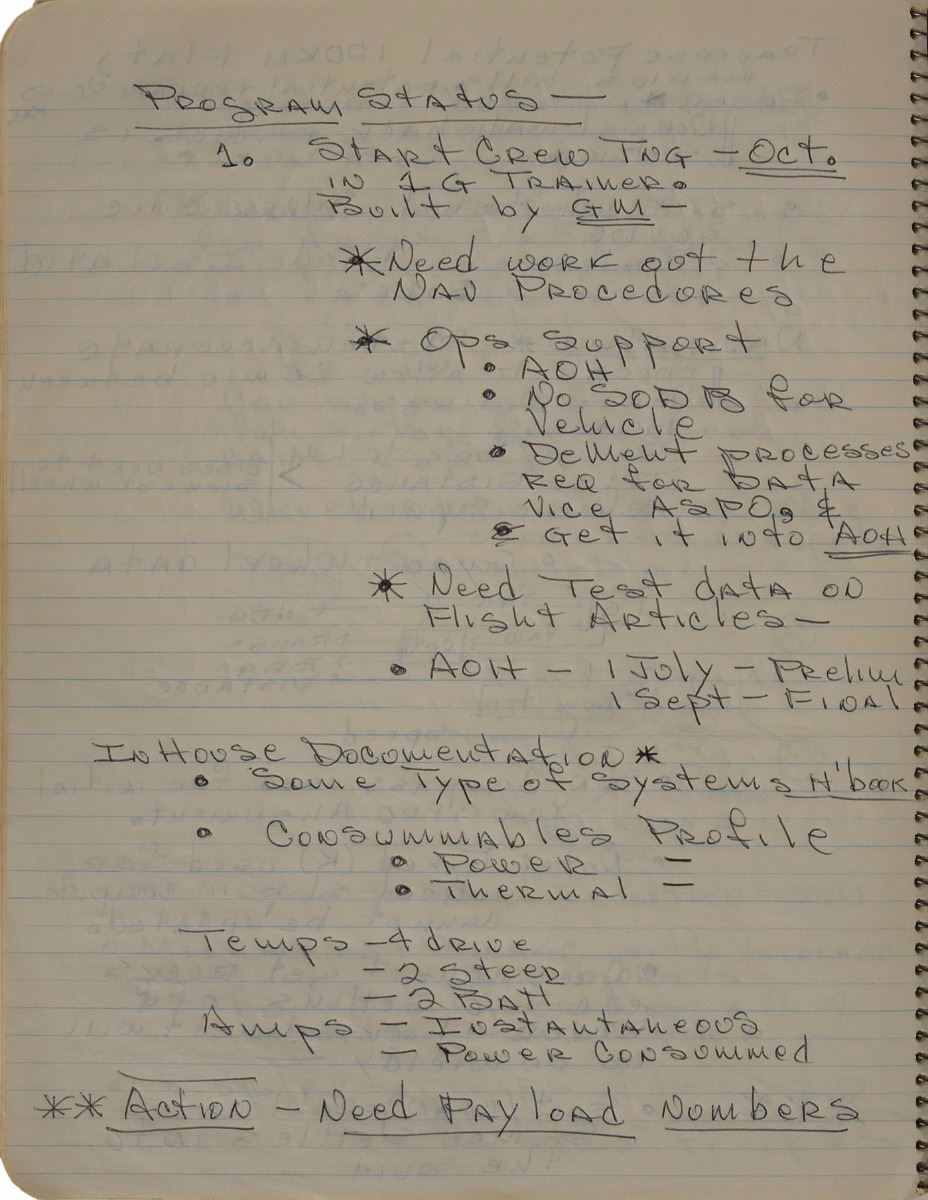 Program Status —
1. Start Crew TNG – Oct.
in 1 G Trainer.
Built by GM –
* Need work out the
Nav Procedures
* Ops Support
• AOH
• No SODB for
Vehicle
• Dement processes
req for Data
vice ASPO, &
• Get it into AOH
* Need Test data on
Flight Articles —
• AOH – 1 July – Prelim
1 Sept – Final
In House Documentation *
• Some Type of Systems H'book
• Consummables Profile
• Power —
• Thermal —
Temps – 4 drive
– 2 Steer
– 2 Batt
Amps – Instantaneous
– Power Consummed
** Action – Need Payload Numbers